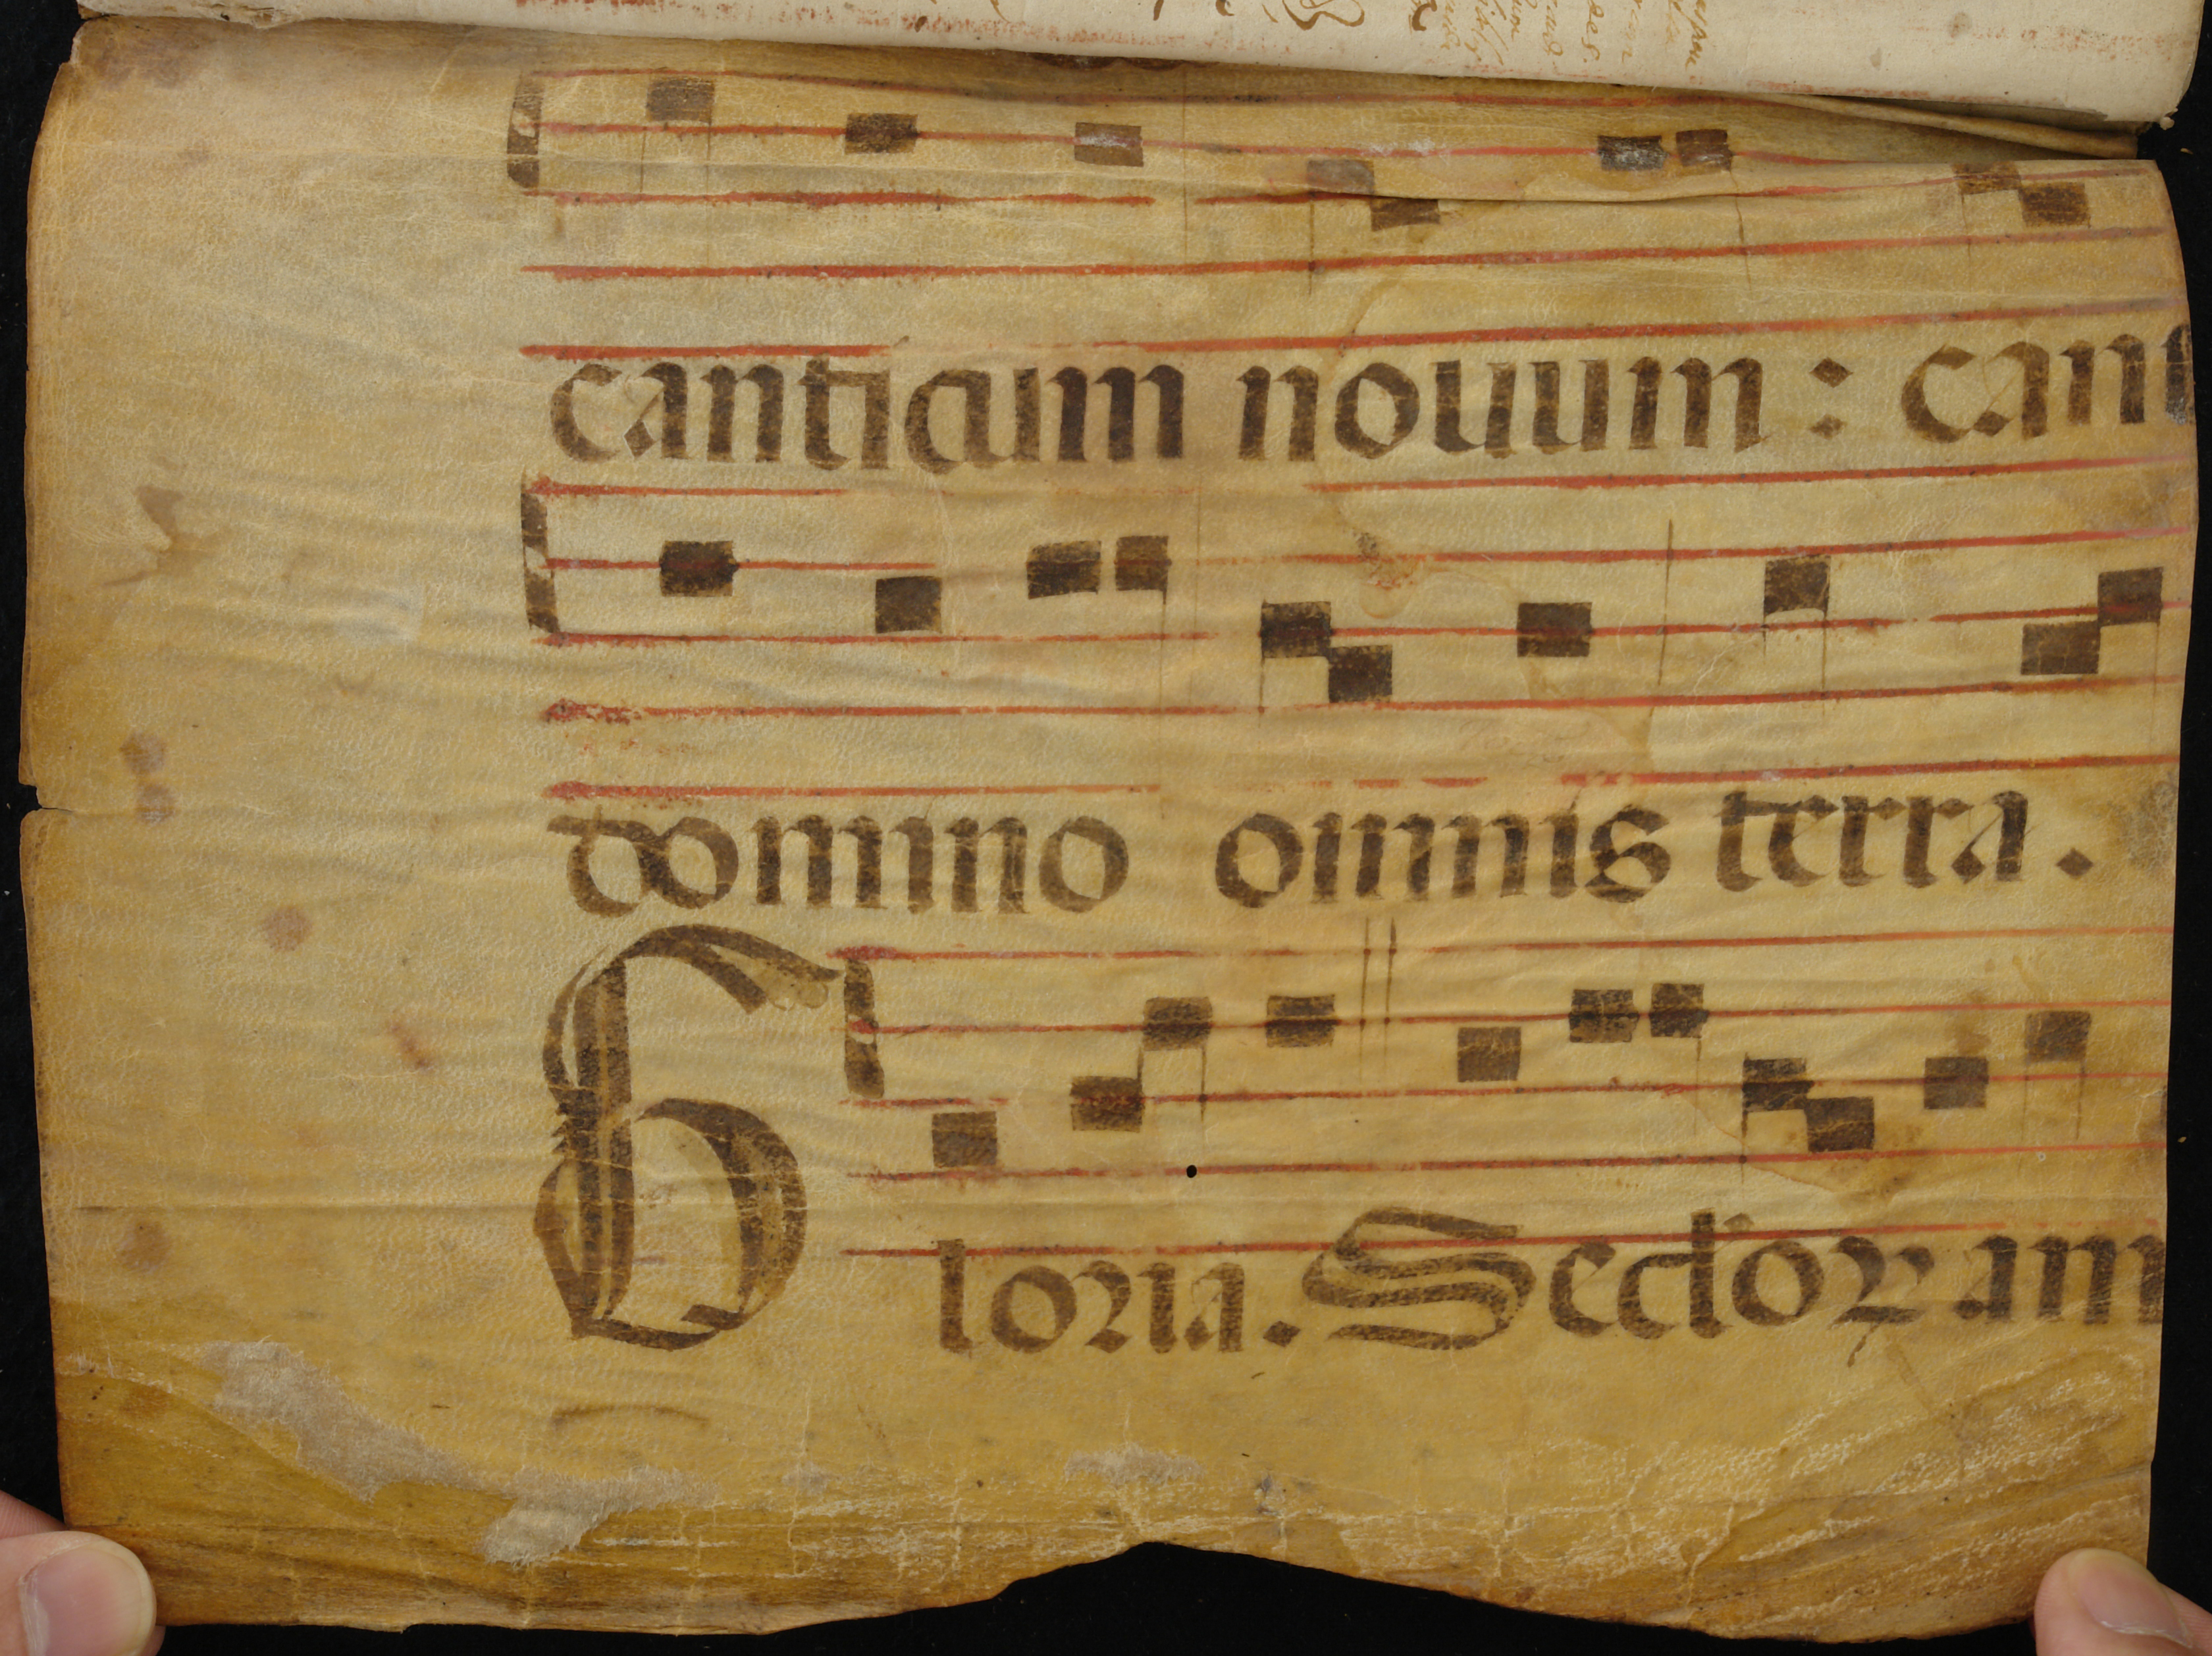 canticum novum : cant
domino omnis terra .
Gloria . Seclor am